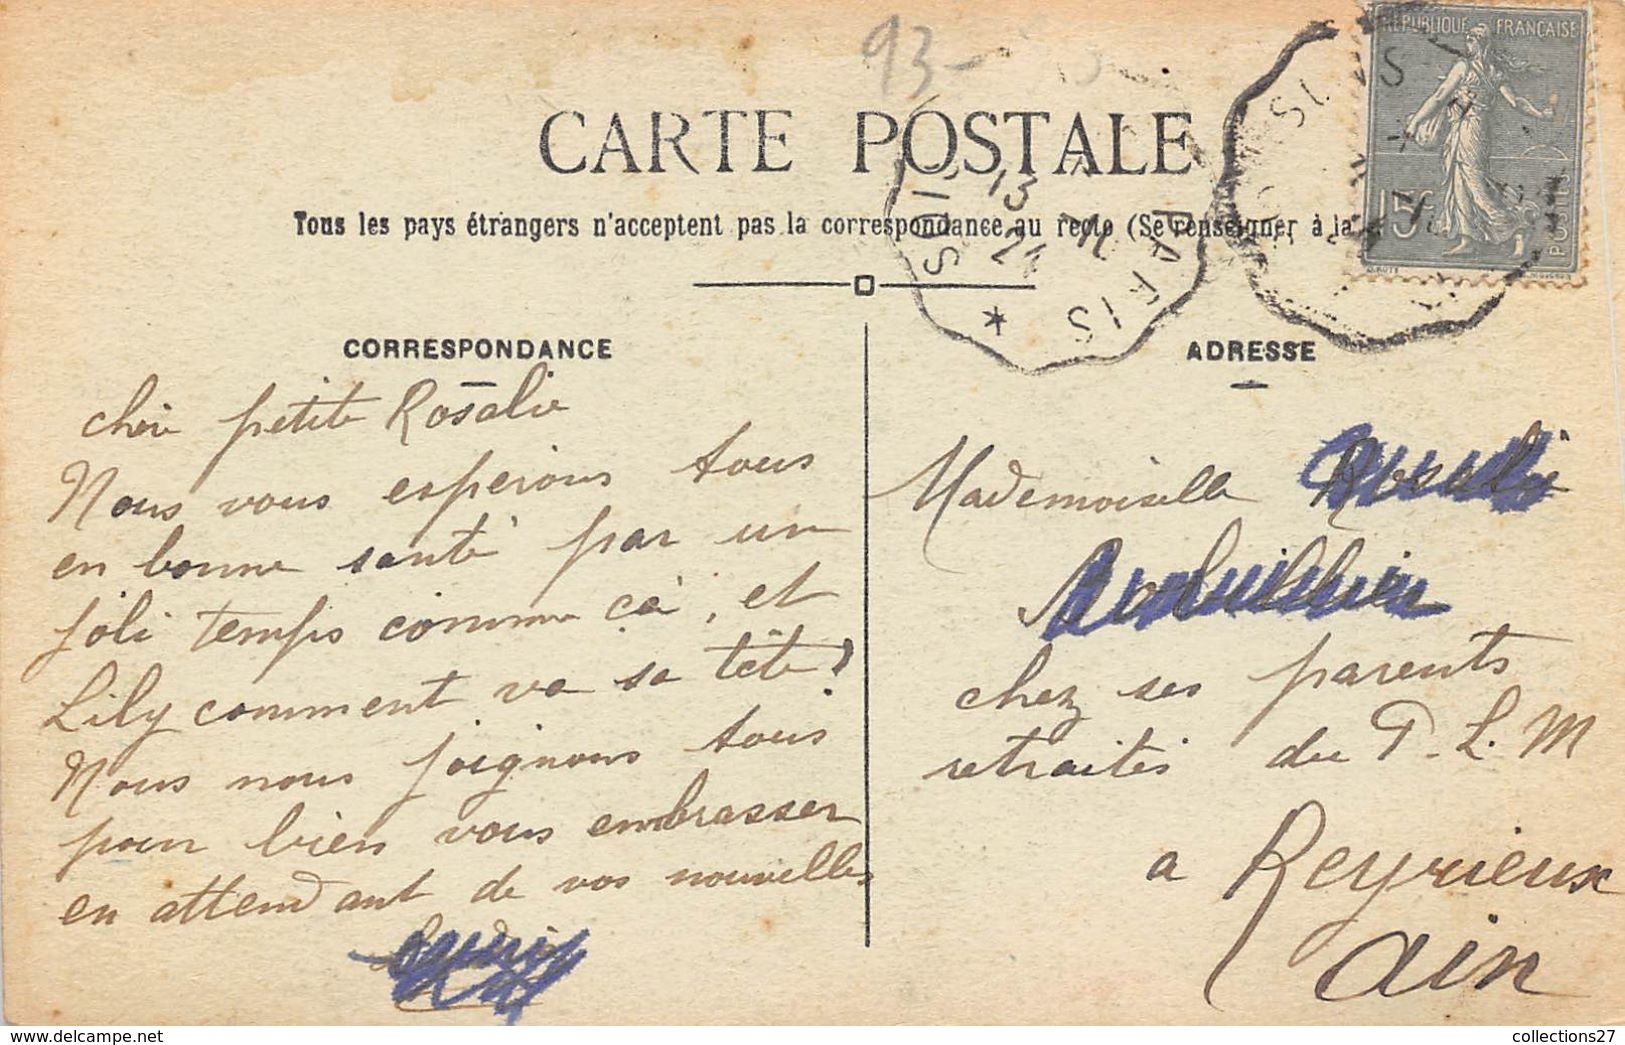 93-
CARTE POSTALE
Tous les pays étrangers n'acceptent pas la correspondance au recto (Se renseigner à la
RÉPUBLIQUE FRANÇAISE
15c
POSTES
13
24
PARIS
CORRESPONDANCE
ADRESSE
chère petite Rosalie
Nous vous esperions tous
en bonne santé par un
joli temps comme ça, et
Lily comment va sa tête?
Nous nous joignons tous
pour bien vous embrasser
en attendant de vos nouvelles
Mademoiselle
chez ses parents
retraités du P.L.M
a Reyrieux
Ain
collections27